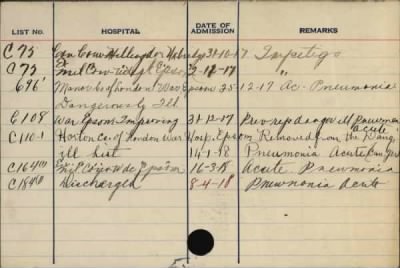 LIST No. HOSPITAL DATE OF ADMISSION REMARKS
C75 Can Conv Hillingdon Uxbridge 31-10-17 Impetigo
C73 Mil Conv Epsom 2-12-17 "
696 Manor Co of London War Epsom 25-12-17 Ac. Pneumonia
Dangerously Ill
E108 War Epsom Improving 31-12-17 Prev rep dangill Pneumonia
acute
C110-1 Horton Co of London War Hosp. Epsom Removed from the Dang
ill list 14-1-18 Pneumonia Acute
C164 Mil Conv Epsom 16-3-18 Acute Pneumonia
C184 Discharged 8-4-18 Pneumonia Acute